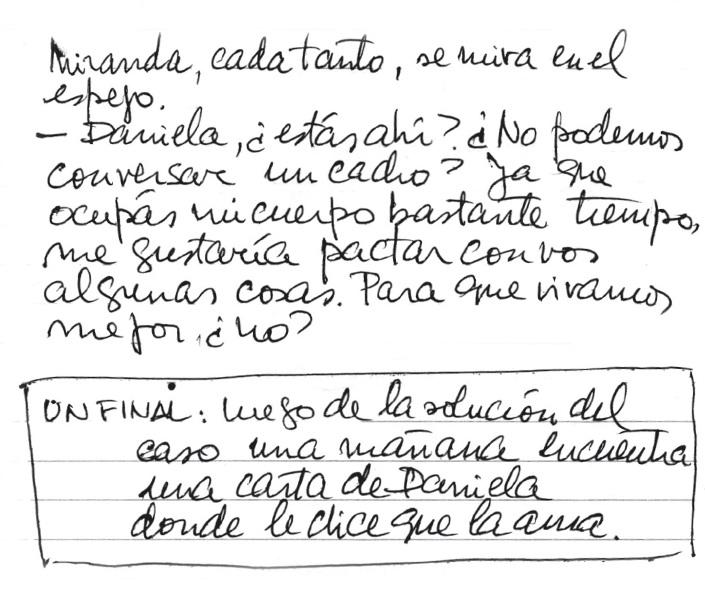 Miranda, cada tanto, se mira en el
espejo.
— Daniela, ¿estás ahí? ¿No podemos
conversar un cacho? Ya que
ocupás mi cuerpo bastante tiempo,
me gustaría pactar con vos
algunas cosas. Para que vivamos
mejor, ¿no?
UN FINAL: luego de la solución del
caso una mañana encuentra
una carta de Daniela
donde le dice que la ama.